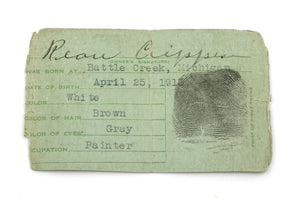 Crippen
OWNER'S SIGNATURE
WAS BORN AT Battle Creek, Michigan
DATE OF BIRTH April 25, 1913
COLOR White
COLOR OF HAIR Brown
COLOR OF EYES Gray
CUPATION, Painter